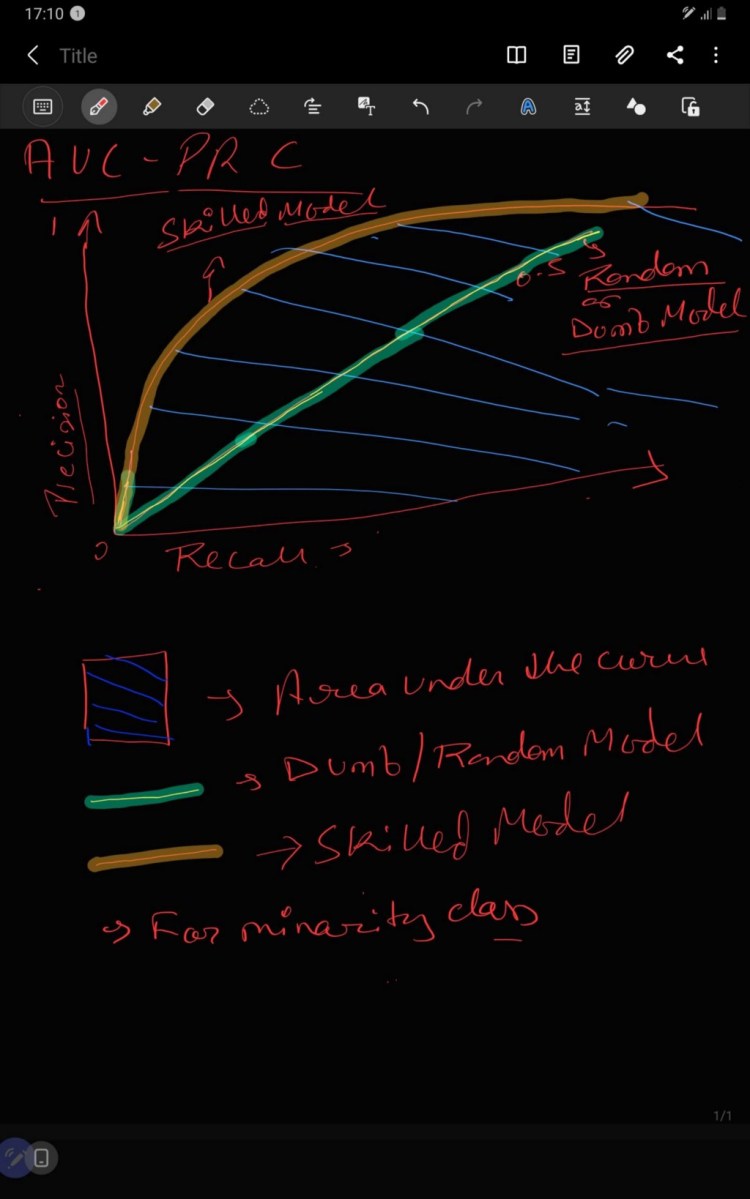 17:10 1
Title
AUC - PR C
Skilled Model
1
0.5
Random
or
Dumb Model
Precision
0
Recall →
→ Area under the curve
→ Dumb/Random Model
→ Skilled Model
→ For minarity class
1/1